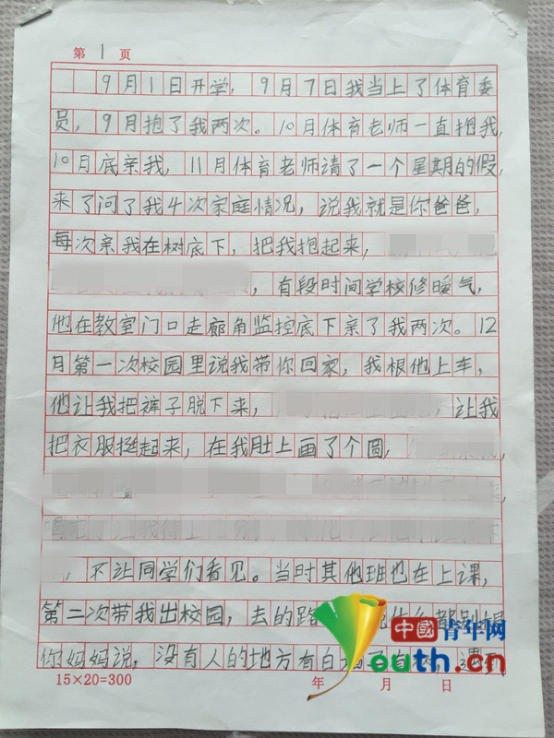 第 1 页
9月1日开学，9月7日我当上了体育委
员，9月抱了我两次。10月体育老师一直抱我，
10月底亲我，11月体育老师请了一个星期的假，
来了问了我4次家庭情况，说我就是你爸爸，
每次亲我在树底下，把我抱起来，
，有段时间学校修暖气，
他在教室门口走廊角监控底下亲了我两次。12
月第一次校园里说我带你回家，我根他上车，
他让我把裤子脱下来，，让我
把衣服挺起来，在我肚上画了个圆，
不让同学们看见。当时其他班也在上课，
第二次带我出校园，去的路
你妈妈说，没有人的地方有白
中國青年网
Youth.cn
15×20=300 年 月 日